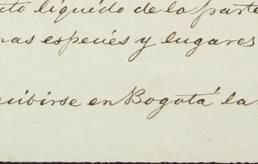 to líquido de la parte
nas especiés y lugares
cibirse en Bogotá la